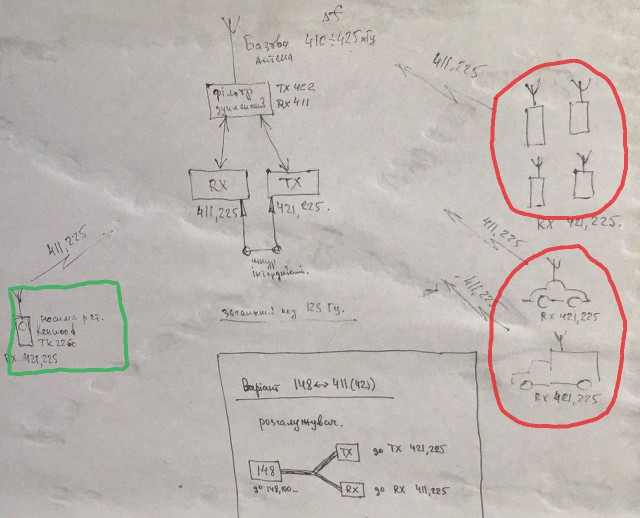 Δf
Базова 410÷425 мГц
Антена
фільтр
дуплексний
TX 422
RX 411
RX
TX
411,225
421,225.
шнур
інтерфейсний.
загальний код 123 Гц.
411,225
RX 421,225.
411,225
411,225
RX 421,225
RX 421,225
411,225
носима р.ст.
Kenwood
TK
RX 421,225
Варіант 148 ↔ 411 (425)
розгалужувач.
148
TX
до TX 421,225
RX
до RX 411,225
до 148,100